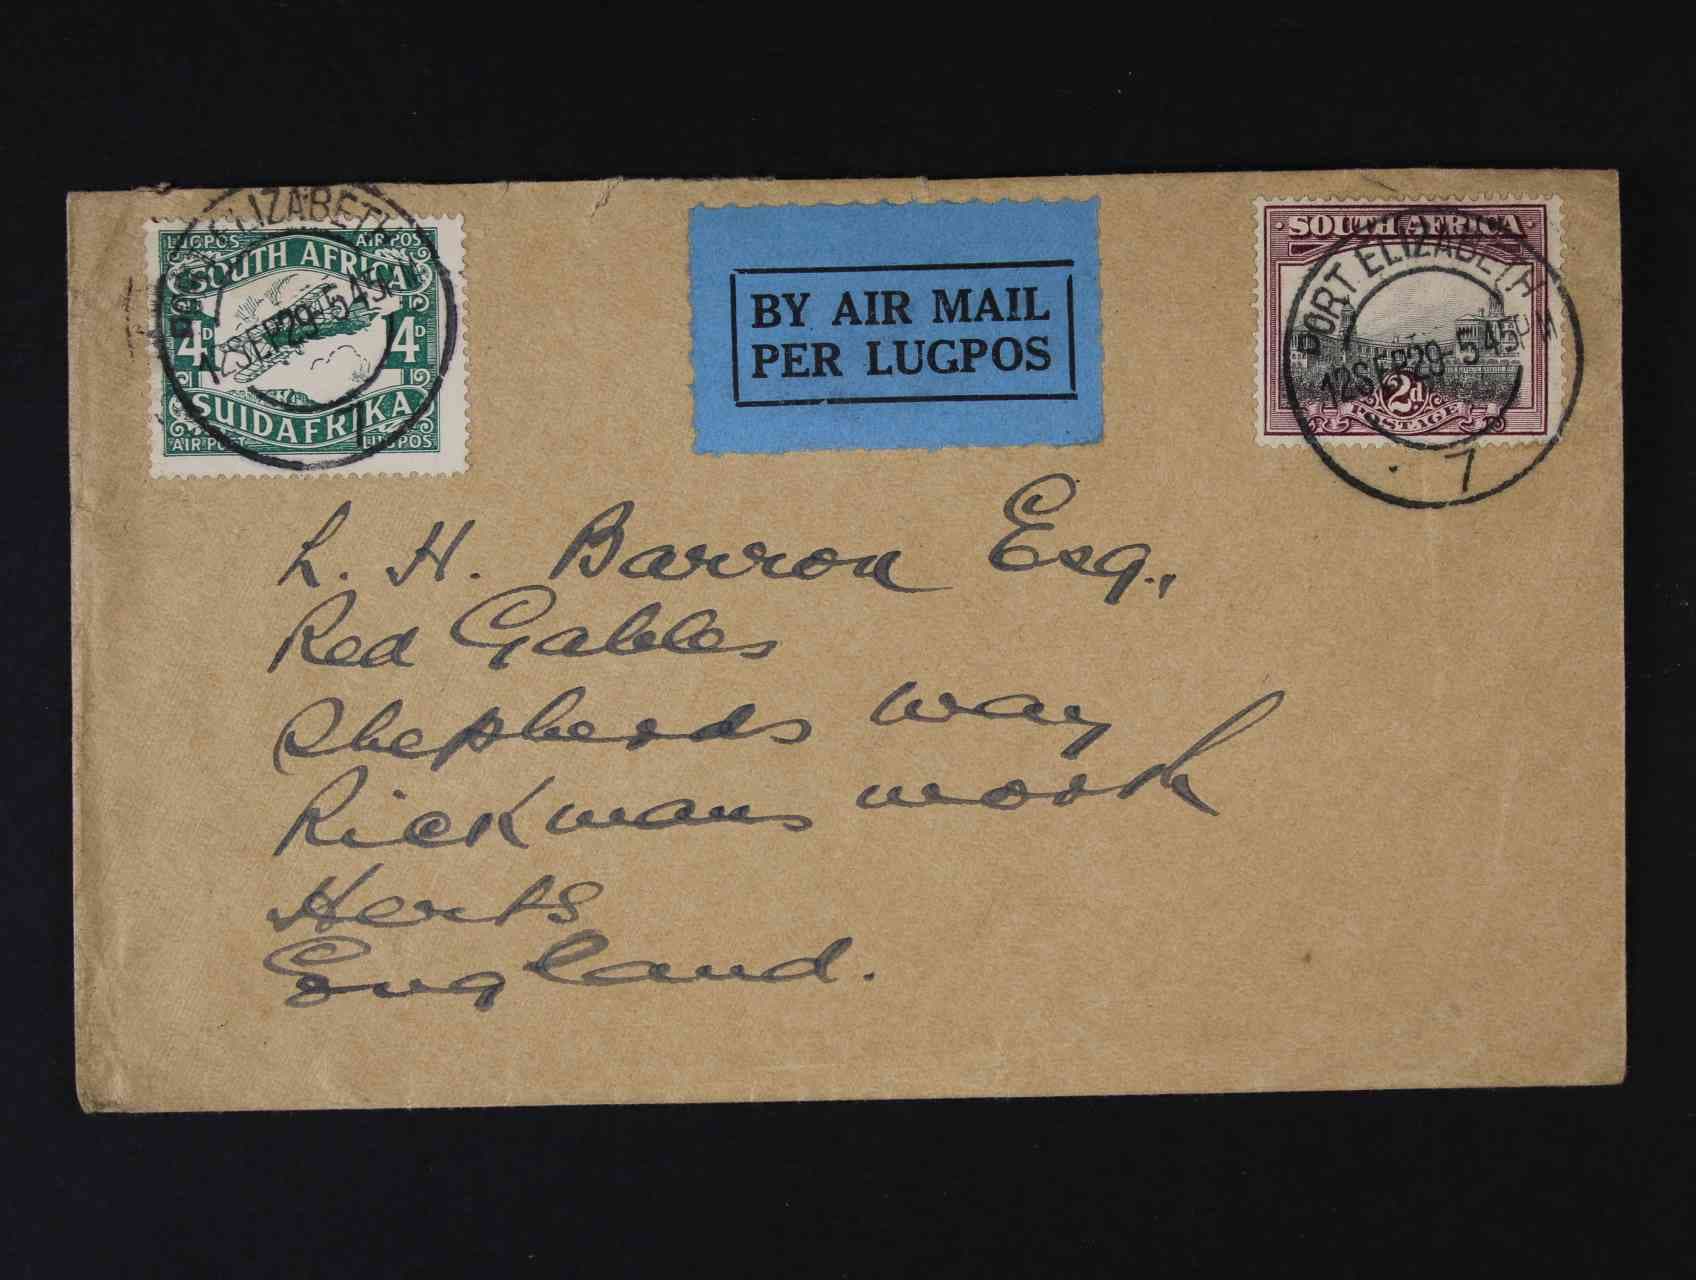 PORT ELIZABETH
12SEP29-545PM
7
LUGPOS AIRPOST
SOUTH AFRICA
4D 4D
SUIDAFRIKA
AIR POST LUGPOS
BY AIR MAIL
PER LUGPOS
SOUTH AFRICA
2d
POSTAGE
PORT ELIZABETH
12SEP29-545PM
7
L. H. Barron Esq.,
Red Gables
Shepherds Way
Rickmansworth
Herts
England.